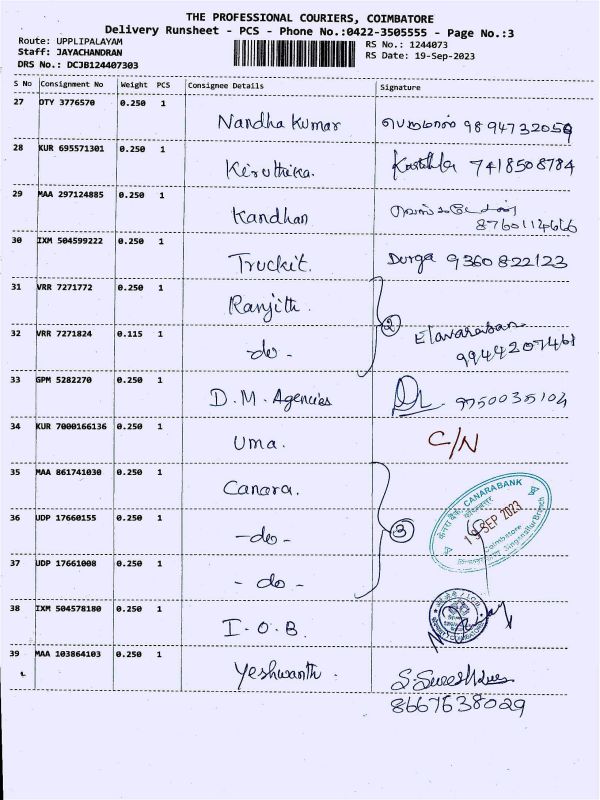 THE PROFESSIONAL COURIERS, COIMBATORE
Delivery Runsheet - PCS - Phone No.:0422-3505555 - Page No.:3
Route: UPPLIPALAYAM
RS No.: 1244073
Staff: JAYACHANDRAN
RS Date: 19-Sep-2023
DRS No.: DCJB124407303
S No Consignment No Weight PCS Consignee Details Signature
27 DTY 3776570 0.250 1 Nandha Kumar பெருமாள் 9894732059
28 KUR 695571301 0.250 1 Kiruthika. 7418508784
29 MAA 297124885 0.250 1 Kandhan
8760114666
30 IXM 504599222 0.250 1 Truckit. Durga 9360822123
31 VRR 7271772 0.250 1 Ranjith.
2
32 VRR 7271824 0.115 1 -do- Elavarasan
9944207461
33 GPM 5282270 0.250 1 D.M. Agencies 9750035104
34 KUR 7000166136 0.250 1 Uma. C/N
35 MAA 861741030 0.250 1 Canara.
CANARA BANK
19 SEP 2023
Coimbatore
Singanallur Branch
36 UDP 17660155 0.250 1 -do- 3
37 UDP 17661008 0.250 1 -do-
38 IXM 504578180 0.250 1 I.O.B.
39 MAA 103864103 0.250 1 Yeshwanth.
8667638029